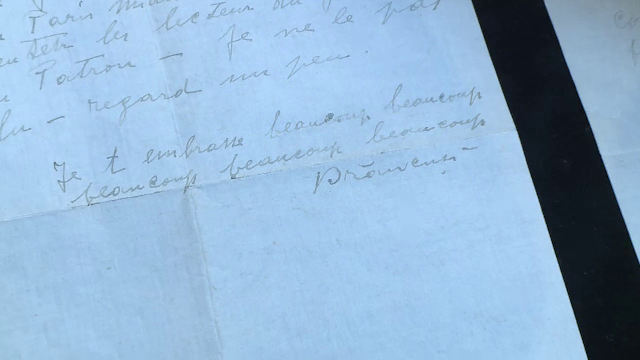 Paris
les lecteur du
Patron - Je ne le pas
lu - regard un peu.
Je t embrasse beaucoup beaucoup
beaucoup beaucoup beaucoup